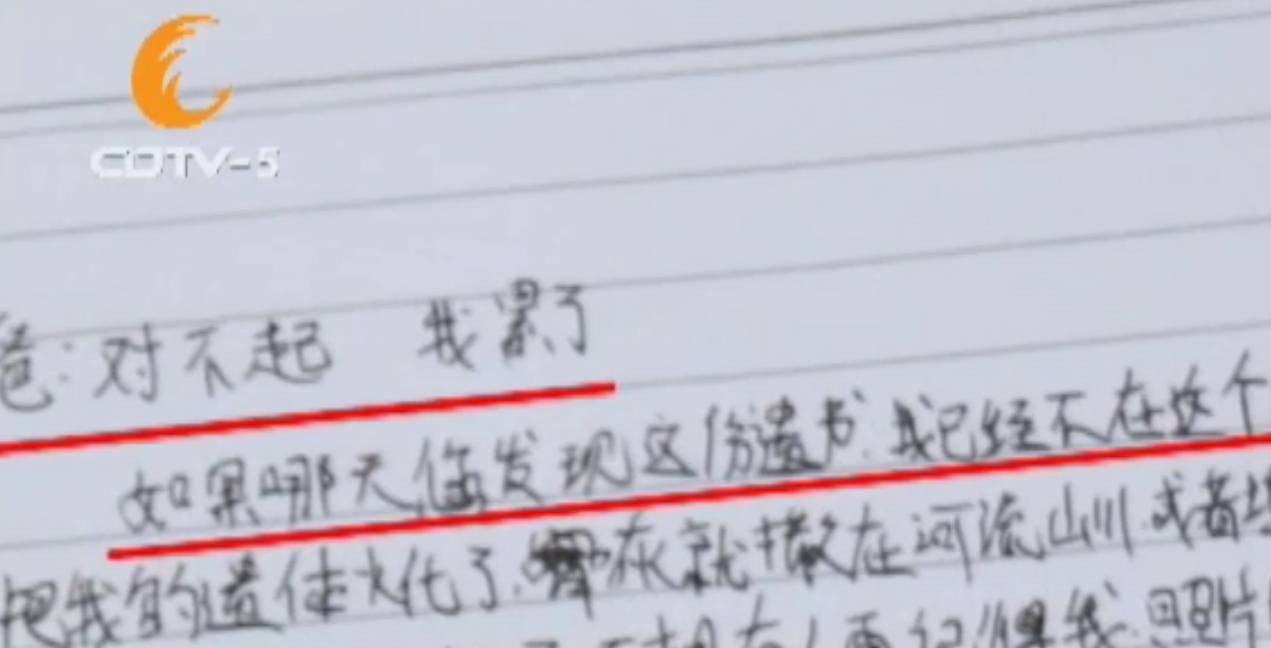 CDTV-5
爸:对不起 我累了
如果哪天你发现这份遗书.我已经不在这个
把我的遗体火化了.骨灰就撒在河流山川.或者
记得我.照片